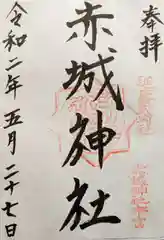 奉拝
赤城神社
令和二年五月二十七日